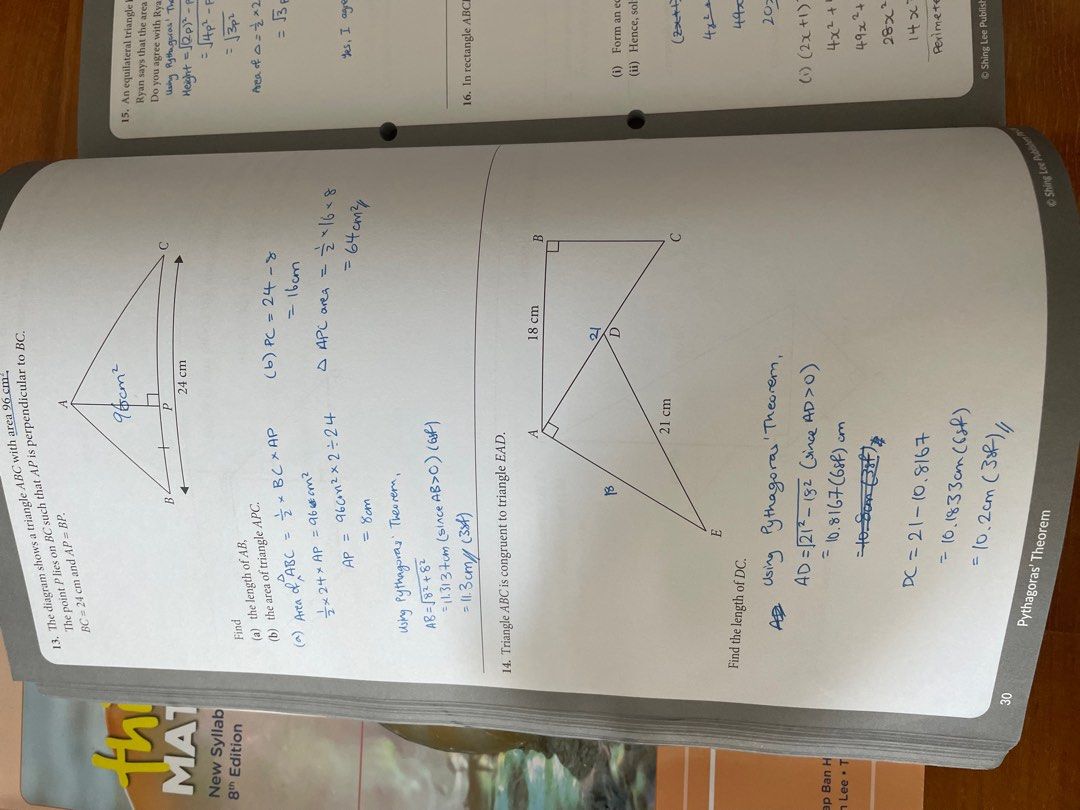 13. The diagram shows a triangle ABC with area 96 cm².
The point P lies on BC such that AP is perpendicular to BC.
BC = 24 cm and AP = BP.
A
96cm²
B
P
C
24 cm
Find
(a) the length of AB,
(b) the area of triangle APC.
(a) Area of △ABC = ½ × BC × AP
½ × 24 × AP = 96cm²
AP = 96cm² × 2 ÷ 24
= 8cm
Using Pythagoras' Theorem,
AB = √8² + 8²
= 11.3137cm (since AB>0) (6sf)
= 11.3cm// (3sf)
(b) PC = 24 - 8
= 16cm
△ APC area = ½ × 16 × 8
= 64cm²//
14. Triangle ABC is congruent to triangle EAD.
A
18 cm
B
18
21
D
C
21 cm
E
Find the length of DC.
Using Pythagoras' Theorem,
AD = √21² - 18² (since AD>0)
= 10.8167 (6sf) cm
= 10.8cm (3sf)
DC = 21 - 10.8167
= 10.1833cm (6sf)
= 10.2cm (3sf)//
30
Pythagoras' Theorem
© Shing Lee Publishers
15. An equilateral triangle
Ryan says that the area
Do you agree with Rya
Using Pythagoras' The
Height = √(2p)² - p
= √4p² - p
= √3p²
= √3 p
Area of △ = ½ × 2
Yes, I agre
16. In rectangle ABC
(i) Form an eq
(ii) Hence, sol
4x² +
49x
(i) (2x+1)
4x² +
49x² +
28x²
14x
Perimete
© Shing Lee Publish
thi
MAT
New Syllab
8th Edition
ap Ban H
n Lee • T